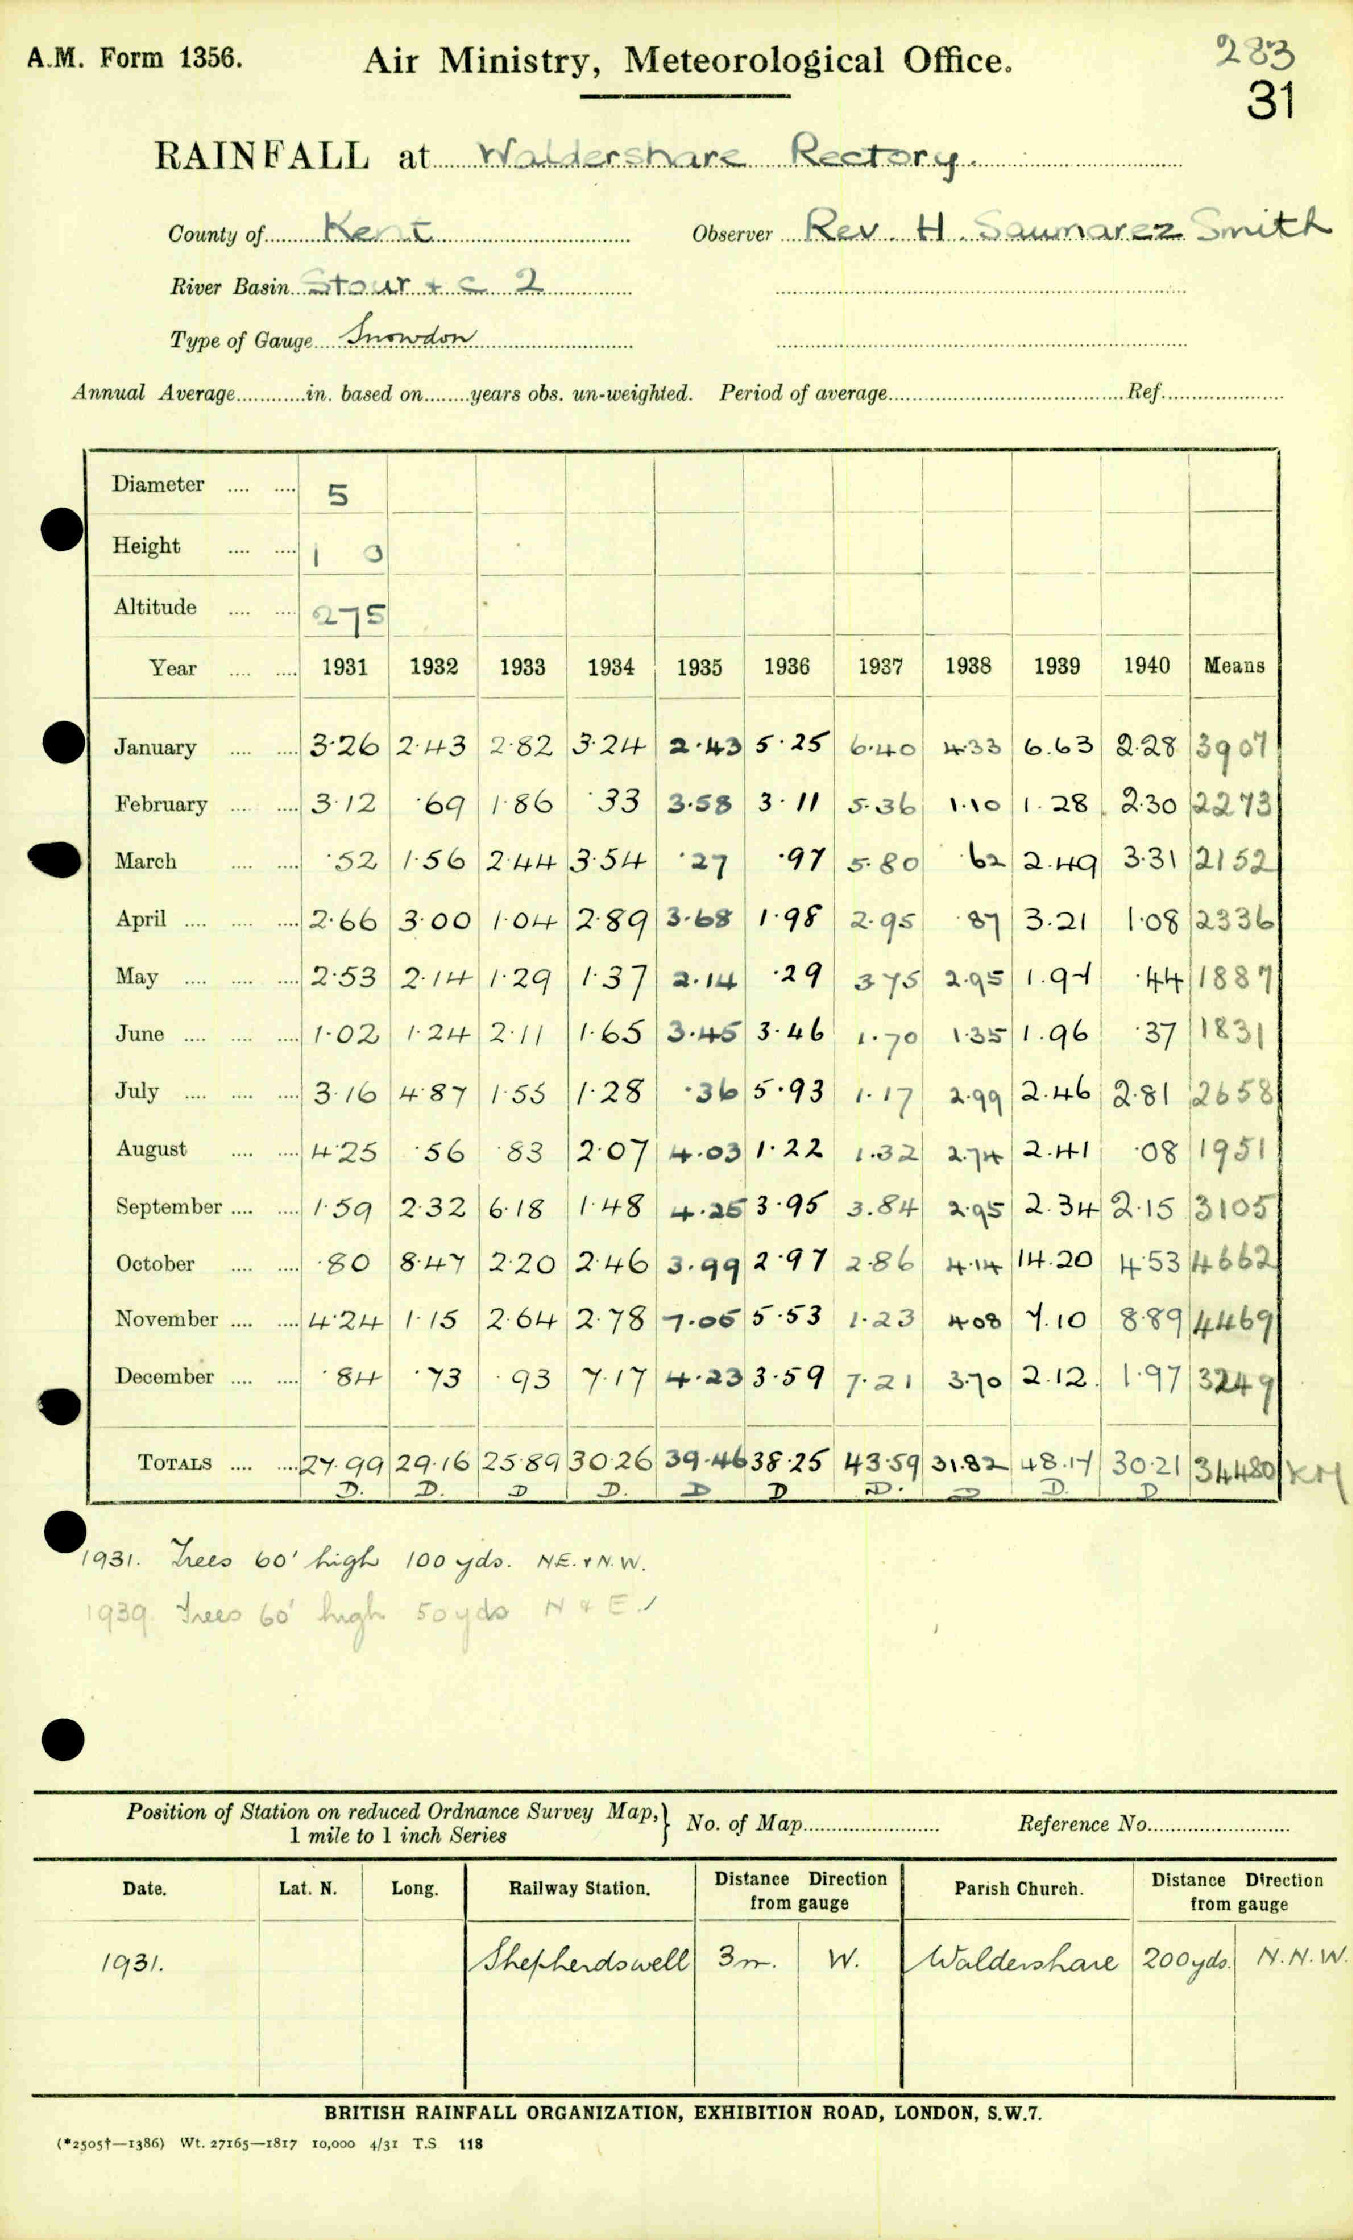 A.M. Form 1356. Air Ministry, Meteorological Office. 283
31
RAINFALL at Waldershare Rectory.
County of Kent Observer Rev. H. Saumarez Smith
River Basin Stour + c 2
Type of Gauge Snowdon
Annual Average in. based on years obs. un-weighted. Period of average Ref.
Diameter 5
Height 1 0
Altitude 275
Year 1931 1932 1933 1934 1935 1936 1937 1938 1939 1940 Means
January 3·26 2·43 2·82 3·24 2·43 5·25 6·40 4·33 6.63 2·28 3907
February 3·12 ·69 1·86 ·33 3·58 3·11 5·36 1·10 1.28 2·30 2273
March ·52 1·56 2·44 3·54 ·27 ·97 5·80 ·62 2.49 3·31 2152
April 2·66 3·00 1·04 2·89 3·68 1·98 2·95 ·87 3.21 1·08 2336
May 2·53 2·14 1·29 1·37 2·14 ·29 3 75 2·95 1.97 ·44 1887
June 1·02 1·24 2·11 1·65 3·45 3·46 1·70 1·35 1.96 ·37 1831
July 3·16 4·87 1·55 1·28 ·36 5·93 1·17 2·99 2.46 2·81 2658
August 4·25 ·56 ·83 2·07 4·03 1·22 1·32 2·74 2.41 ·08 1951
September 1·59 2·32 6·18 1·48 4·25 3·95 3.84 2·95 2.34 2·15 3105
October ·80 8·47 2·20 2·46 3·99 2·97 2·86 4·14 14.20 4·53 4662
November 4·24 1·15 2·64 2·78 7·05 5·53 1·23 4 08 7.10 8·89 4469
December ·84 ·73 ·93 7·17 4·23 3·59 7·21 3·70 2.12. 1·97 3249
TOTALS 27·99 29·16 25·89 30·26 39·46 38·25 43·59 31.82 48.17 30·21 34480 KM
D. D. D D. D D D. D D. D
1931. Trees 60' high 100 yds. N.E. + N.W.
1939. Trees 60' high 50 yds N & E.
Position of Station on reduced Ordnance Survey Map,} No. of Map Reference No.
1 mile to 1 inch Series
Date. Lat. N. Long. Railway Station. Distance Direction from gauge Parish Church. Distance Direction from gauge
1931. Shepherdswell 3 m. W. Waldershare 200 yds. N.N.W.
BRITISH RAINFALL ORGANIZATION, EXHIBITION ROAD, LONDON, S.W.7.
(*2505†—1386) Wt. 27165—1817 10,000 4/31 T.S 118